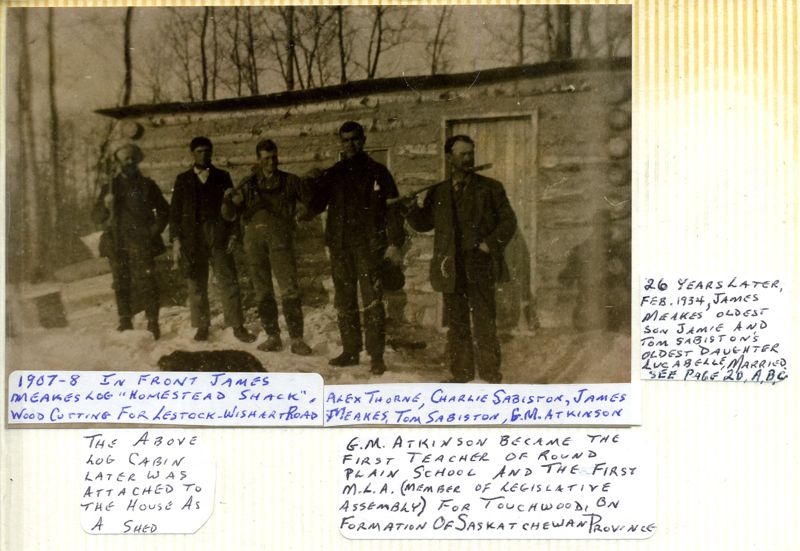 26 YEARS LATER,
FEB. 1934, JAMES
MEAKES OLDEST
SON JAMIE AND
TOM SABISTON'S
OLDEST DAUGHTER
LUCABELLE, MARRIED
SEE PAGE 20, A, B, C.
1907-8 IN FRONT JAMES
MEAKES LOG "HOMESTEAD SHACK".
WOOD CUTTING FOR LESTOCK-WISHART ROAD
ALEX THORNE, CHARLIE SABISTON, JAMES
MEAKES, TOM SABISTON, G.M. ATKINSON
THE ABOVE
LOG CABIN
LATER WAS
ATTACHED TO
THE HOUSE AS
A SHED
G.M. ATKINSON BECAME THE
FIRST TEACHER OF ROUND
PLAIN SCHOOL AND THE FIRST
M.L.A. (MEMBER OF LEGISLATIVE
ASSEMBLY) FOR TOUCHWOOD, ON
FORMATION OF SASKATCHEWAN PROVINCE